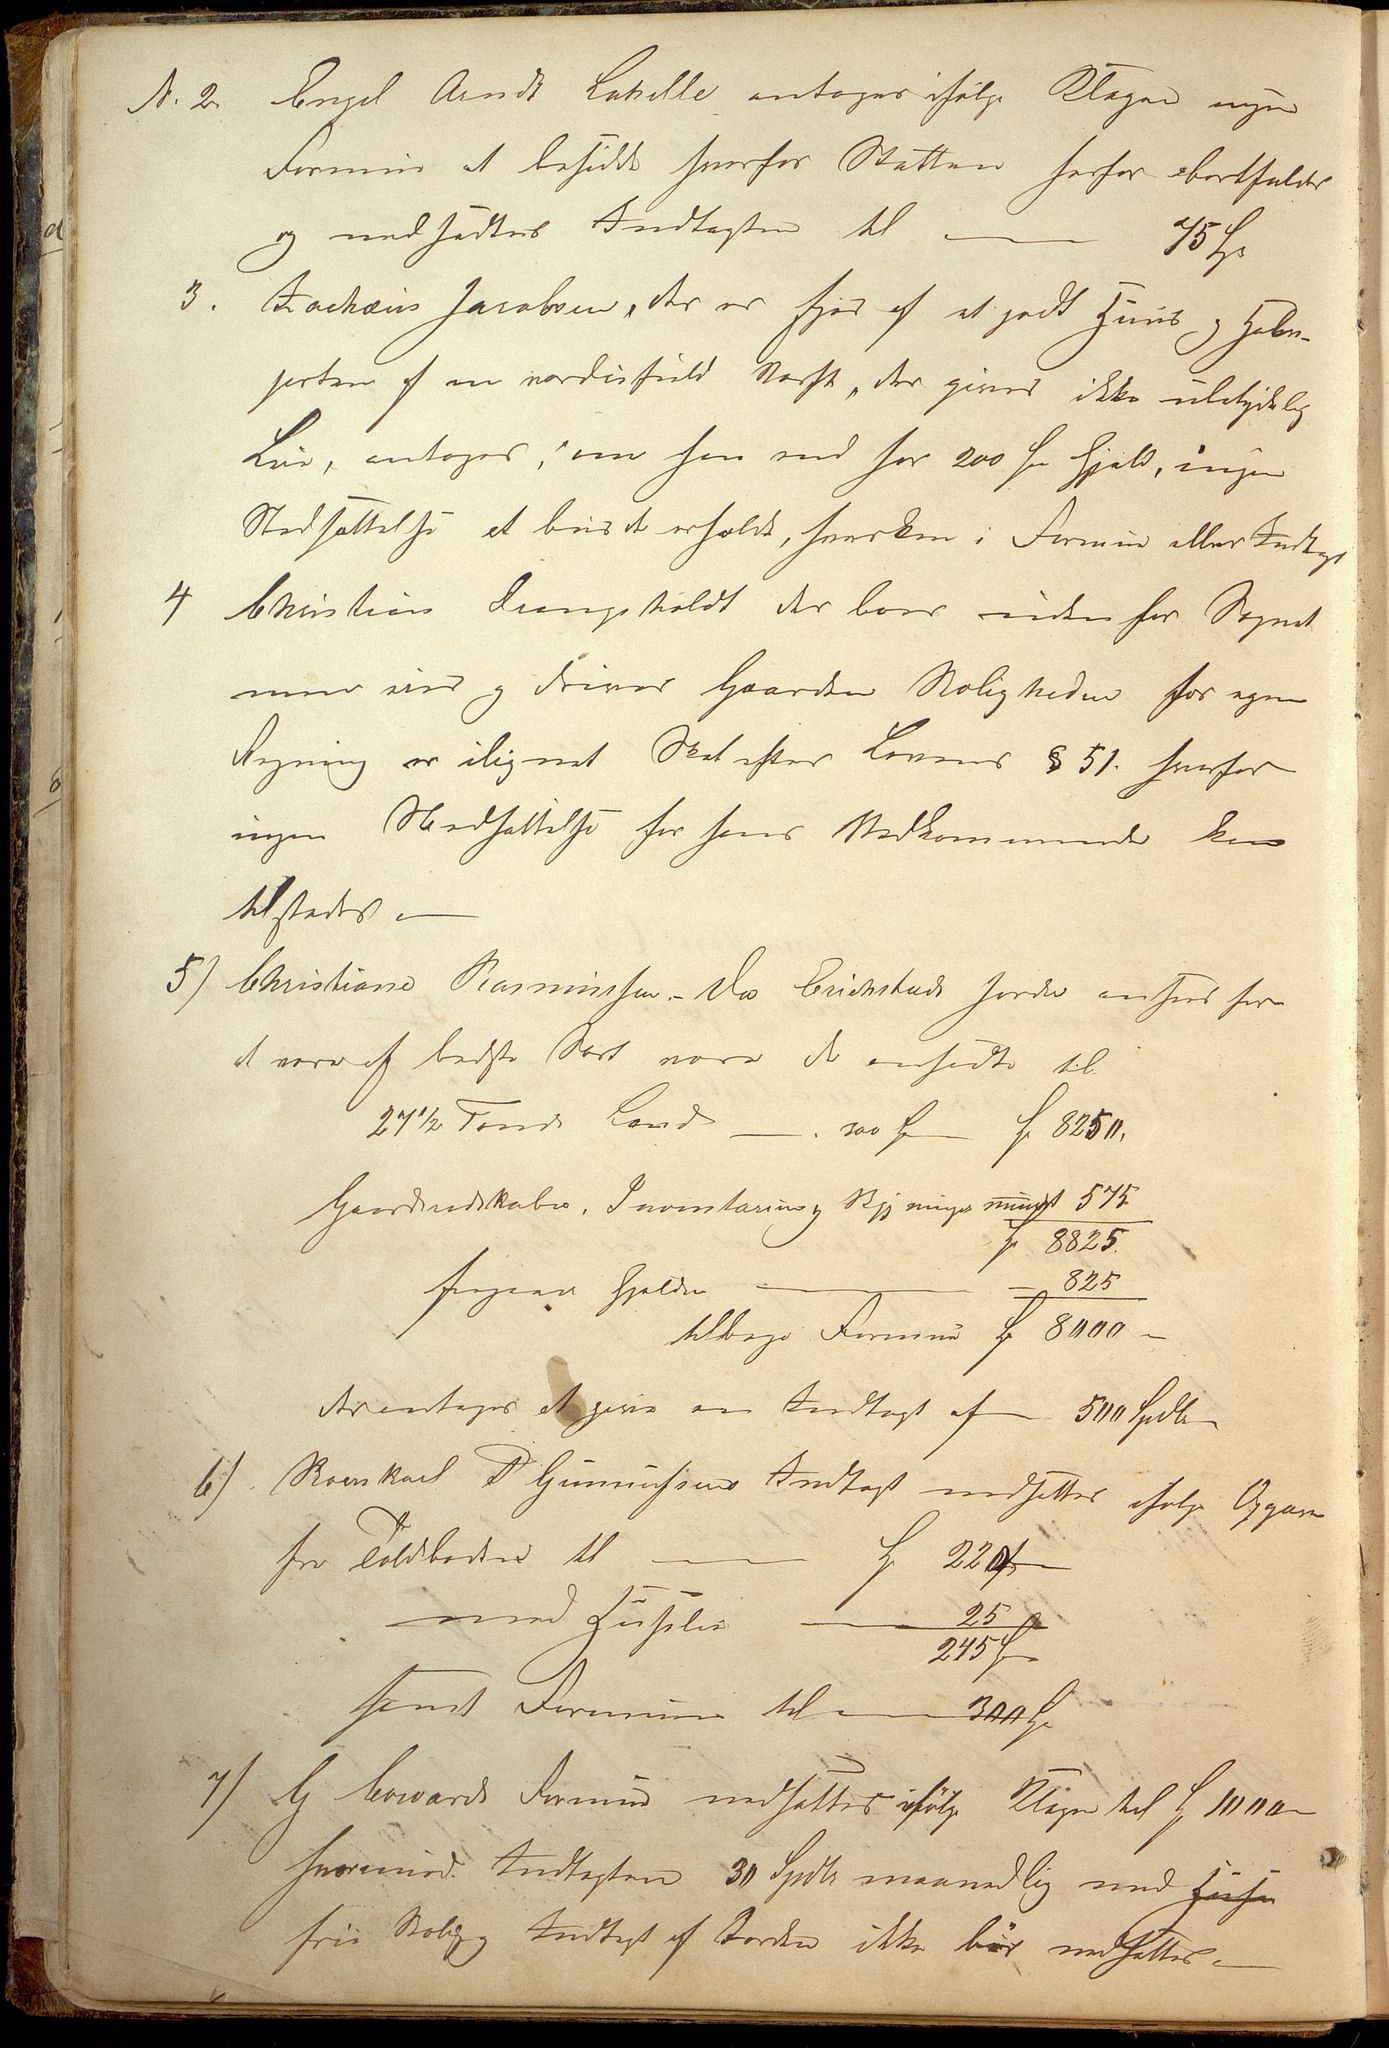 N. 2. Engel Arndt Labelle antages ifølge Klagen ingen
Formue at besidde hvorfor Skatten herfor bortfalder
og nedsættes Indtægten til — 75 Sp
3. Zachæus Jacobsen, der er Ejer af et godt Huus og Halv-
parten af en værdifuld, der giver ikke ubetydelig
Leie, antages, om han end har 200 Sp Gjæld, ingen
Nedsættelse at burde erholde, hverken i Formue eller Indtægt
4 Christian Drangsholdt der boer udenfor Sognet
men eier og driver Gaarden Roligheden for egen
Regning er ilignet Skat efter Lovens § 51. hvorfor
ingen Nedsættelse for hans Vedkommende kan
tilstedes —
5) Christiane Rasmussen. – Da jorder ansees for
at være af bedste Sort være de ansatte til
27 1/2 Tønde Land — . 300 Sp Sp 8250.
Gaardsredskaber, Inventarium og 575
Sp 8825.
fragaar Gjælden — 825
tilbage Formue Sp 8000 –
der antages at give en Indtægt af — 500 Spdlr
6) P Gunuldsens Indtægt nedsættes ifølge Opgave
fra Toldboden til — Sp 220
med Huusleie — 25
245 Sp
samt Formuen til — 300 Sp
7) G Edwards Formue nedsættes ifølge Klagen til Sp 1000 –
hvorimod Indtægten 30 Spdlr maanedlig med
frie Bolig og Indtægt af Jorden ikke bør nedsættes. —